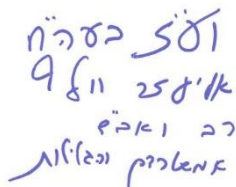 וע"ז בעה"ח
אליעזר וולף
רב ואב"ד
אמשטרדם והגלילות